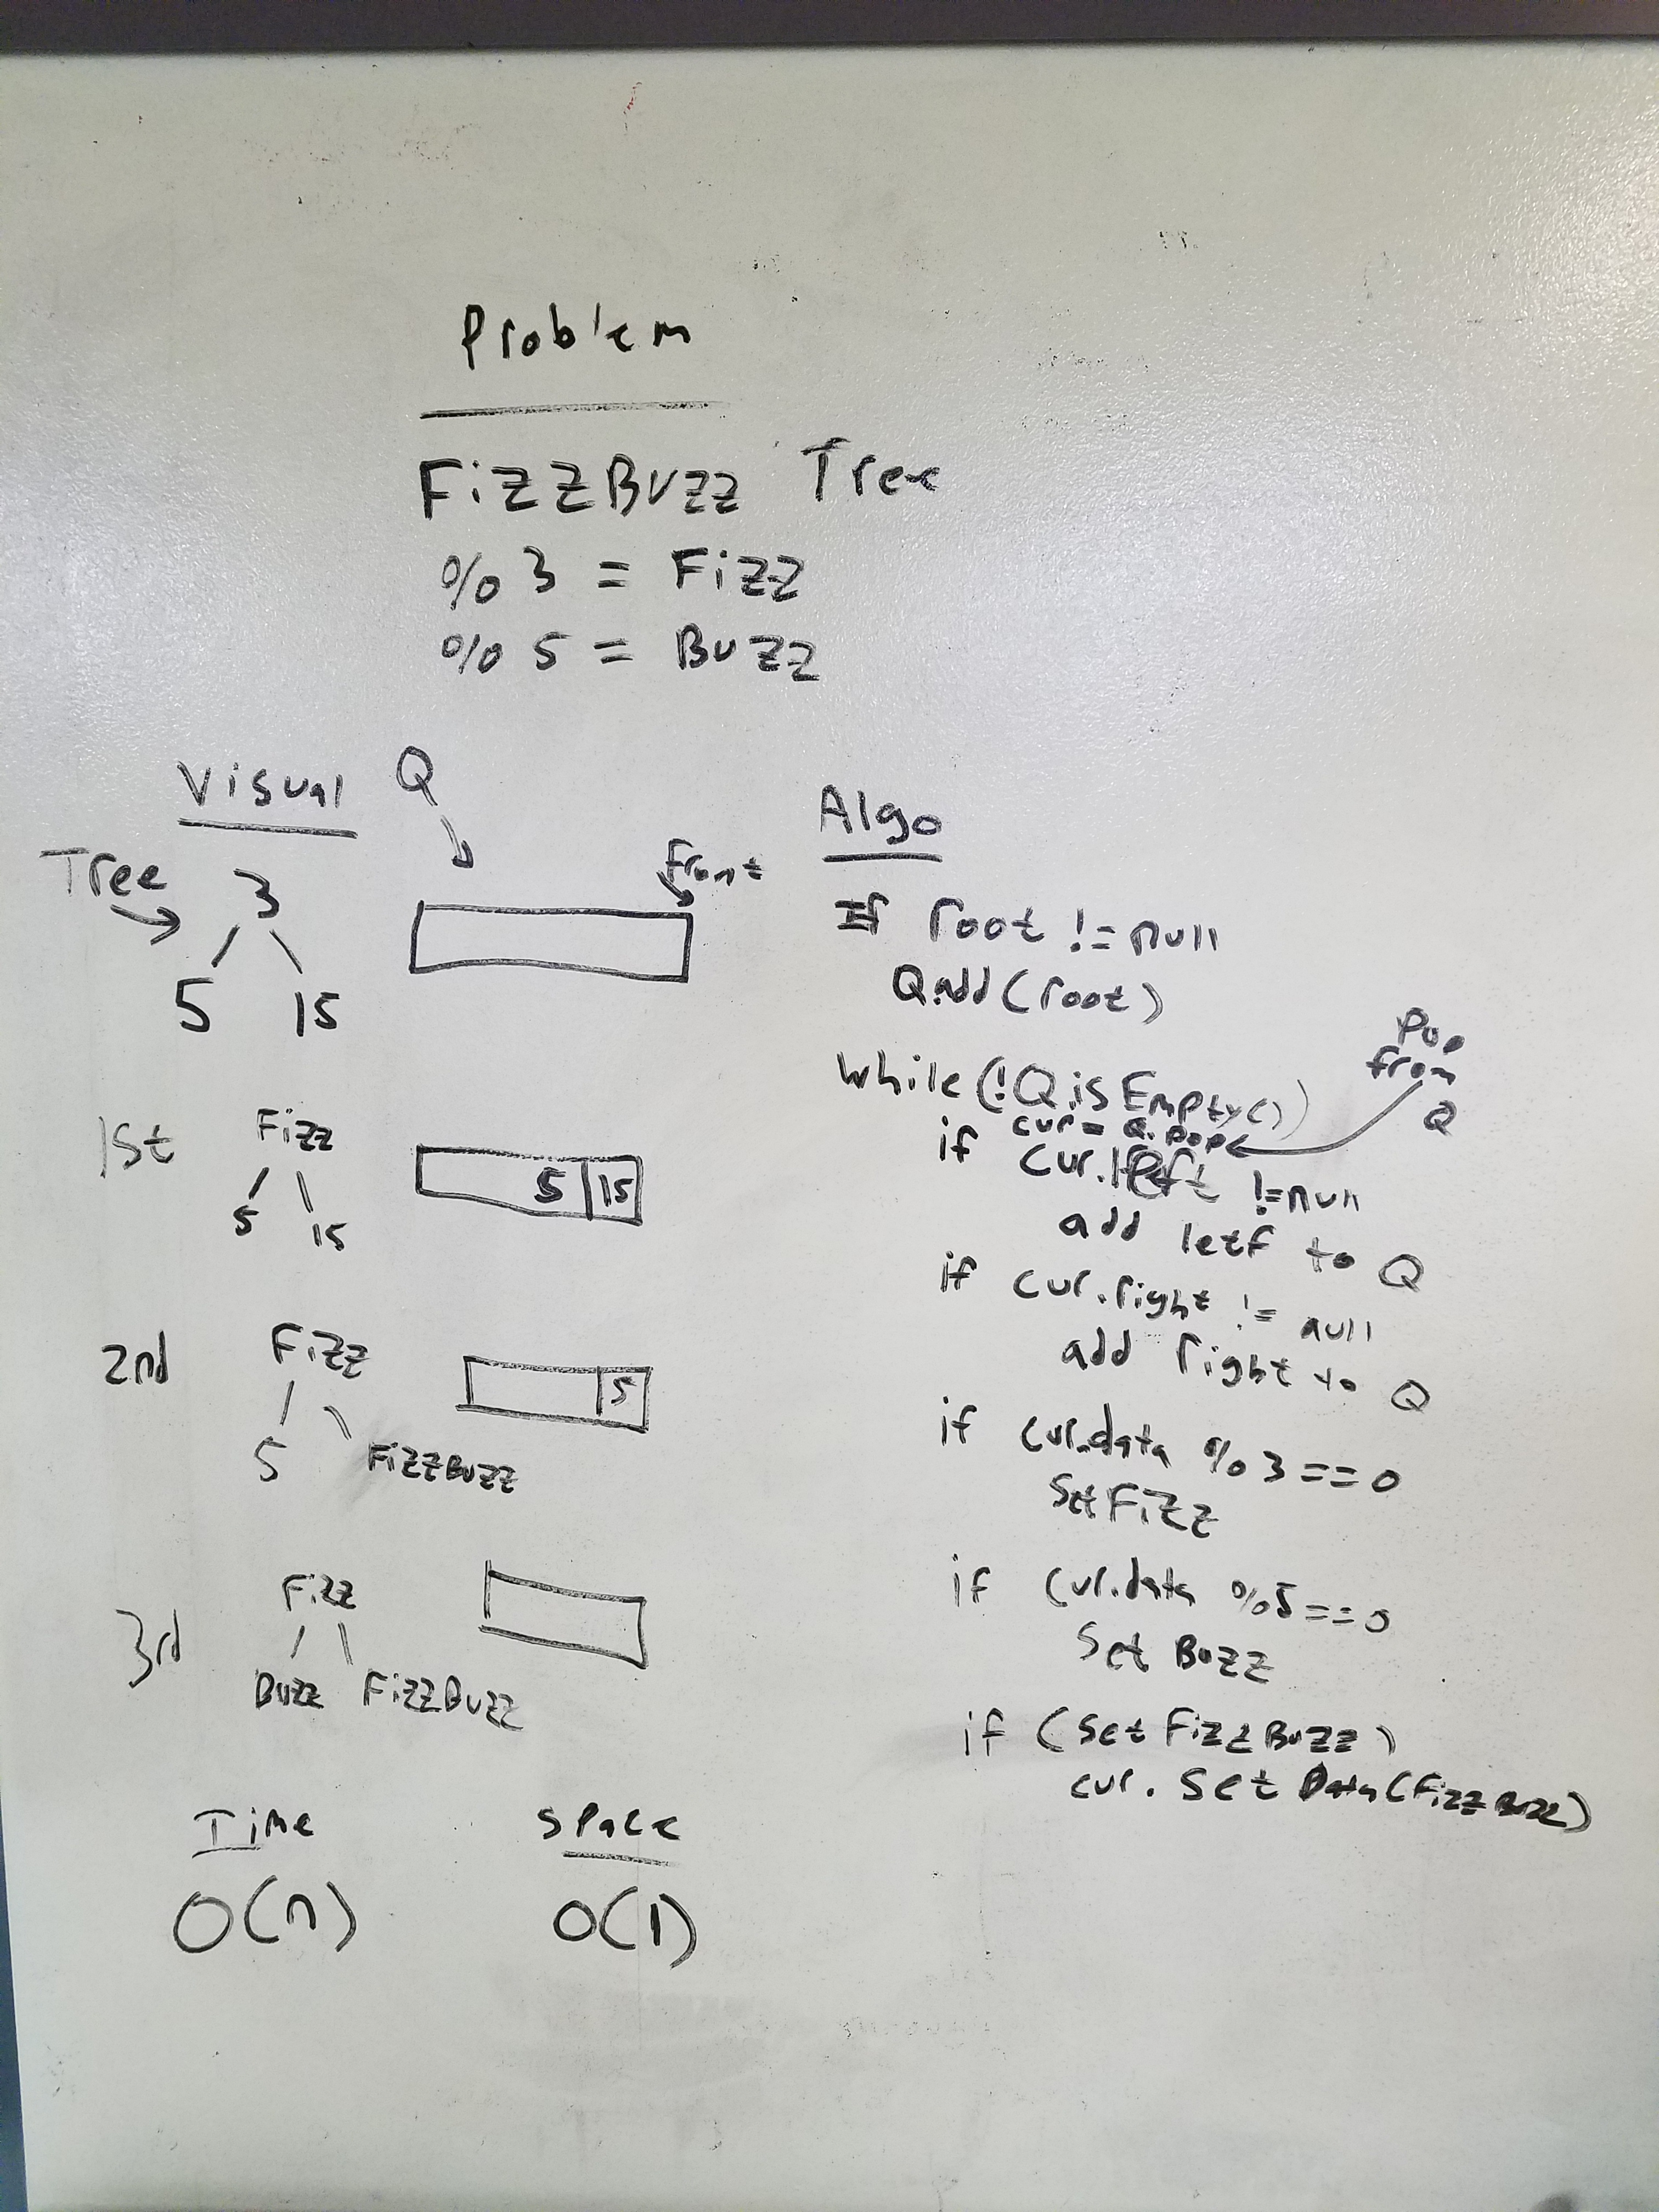 Problem
FizzBuzz Tree
% 3 = Fizz
% 5 = Buzz
Visual Q
Tree
Front
3
5 15
1st Fizz
5 15
5 15
2nd Fizz
5
5 FizzBuzz
3rd Fizz
Buzz FizzBuzz
Time Space
O(n) O(1)
Algo
If root != null
Q.add(root)
while(!Q.isEmpty())
cur = Q.pop
Pop
from
Q
if cur.left != null
add letf to Q
if cur.right != null
add right to Q
if cur.data % 3 == 0
Set Fizz
if cur.data %5 == 0
Set Buzz
if (Set FizzBuzz)
cur. Set Data(FizzBuzz)